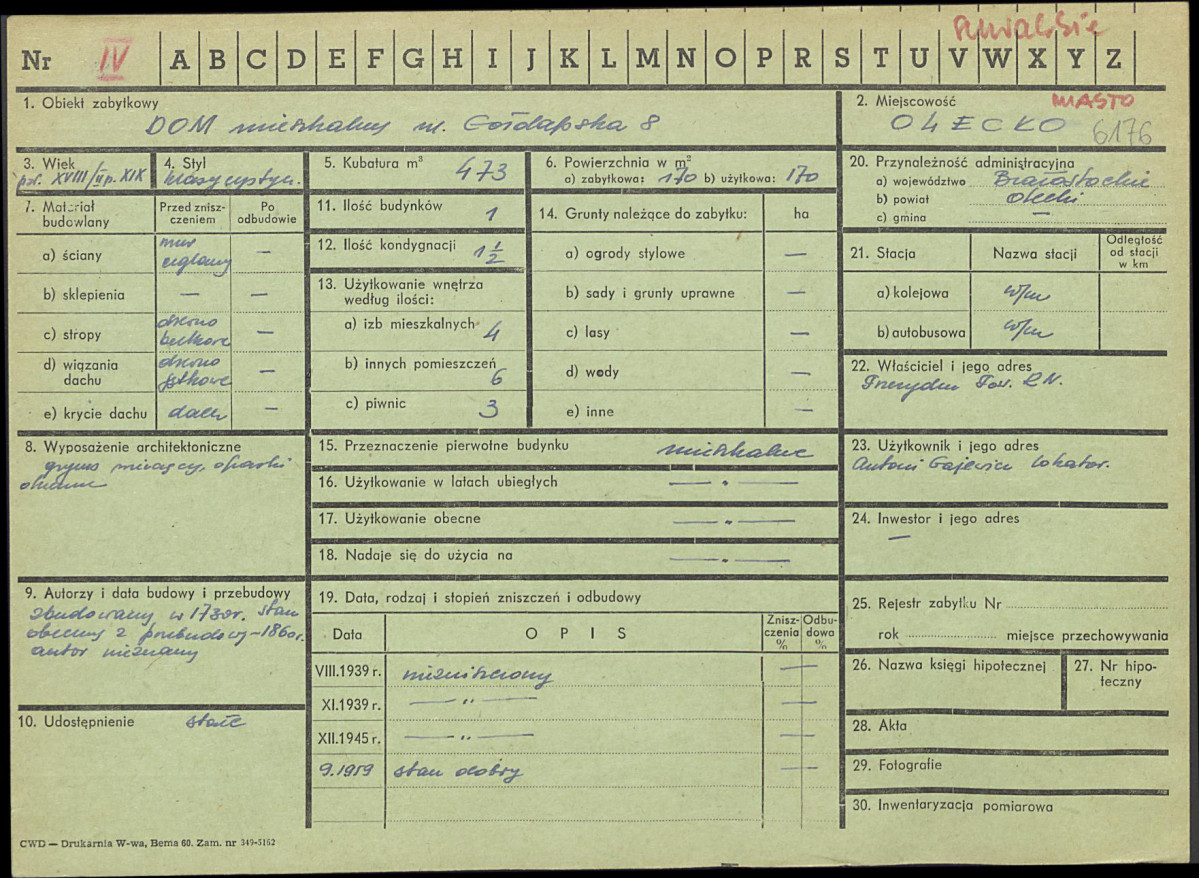 Suwalskie
Nr IV A B C D E F G H I J K L M N O P R S T U V W X Y Z
1. Obiekt zabytkowy
DOM mieszkalny ul. Gołdapska 8
2. Miejscowość MIASTO
OLECKO 6176
3. Wiek
poł. XVIII/II p. XIX
4. Styl
klasycystyczn.
5. Kubatura m³ 473
6. Powierzchnia w m²
a) zabytkowa: 170 b) użytkowa: 170
7. Materiał budowlany
Przed zniszczeniem
Po odbudowie
a) ściany mur ceglany —
b) sklepienia — —
c) stropy drewno belkowe —
d) wiązania dachu drewno jętkowe —
e) krycie dachu dach. —
8. Wyposażenie architektoniczne
gzyms wieńczący, opaski
okienne
9. Autorzy i data budowy i przebudowy
zbudowany w 1780r. stan
obecny z przebudowy-1860r.
autor nieznany
10. Udostępnienie stałe
11. Ilość budynków 1
12. Ilość kondygnacji 1 1/2
13. Użytkowanie wnętrza
według ilości:
a) izb mieszkalnych 4
b) innych pomieszczeń 6
c) piwnic 3
14. Grunty należące do zabytku: ha
a) ogrody stylowe —
b) sady i grunty uprawne —
c) lasy —
d) wody —
e) inne —
15. Przeznaczenie pierwotne budynku mieszkalne
16. Użytkowanie w latach ubiegłych — " —
17. Użytkowanie obecne — " —
18. Nadaje się do użycia na — " —
19. Data, rodzaj i stopień zniszczeń i odbudowy
Data OPIS Zniszczenia % Odbudowa %
VIII.1939 r. niezniszczony —
XI.1939 r. — " — —
XII.1945 r. — " — —
9.1959 stan dobry —
20. Przynależność administracyjna
a) województwo Białostockie
b) powiat Olecki
c) gmina —
21. Stacja Nazwa stacji Odległość od stacji w km
a) kolejowa w/m
b) autobusowa w/m
22. Właściciel i jego adres
Prezydium Pow. R.N.
23. Użytkownik i jego adres
Antoni Gajewicz lokator.
24. Inwestor i jego adres
—
25. Rejestr zabytku Nr
rok miejsce przechowywania
26. Nazwa księgi hipotecznej
27. Nr hipoteczny
28. Akta
29. Fotografie
30. Inwentaryzacja pomiarowa
CWD — Drukarnia W-wa, Bema 60. Zam. nr 349-5162